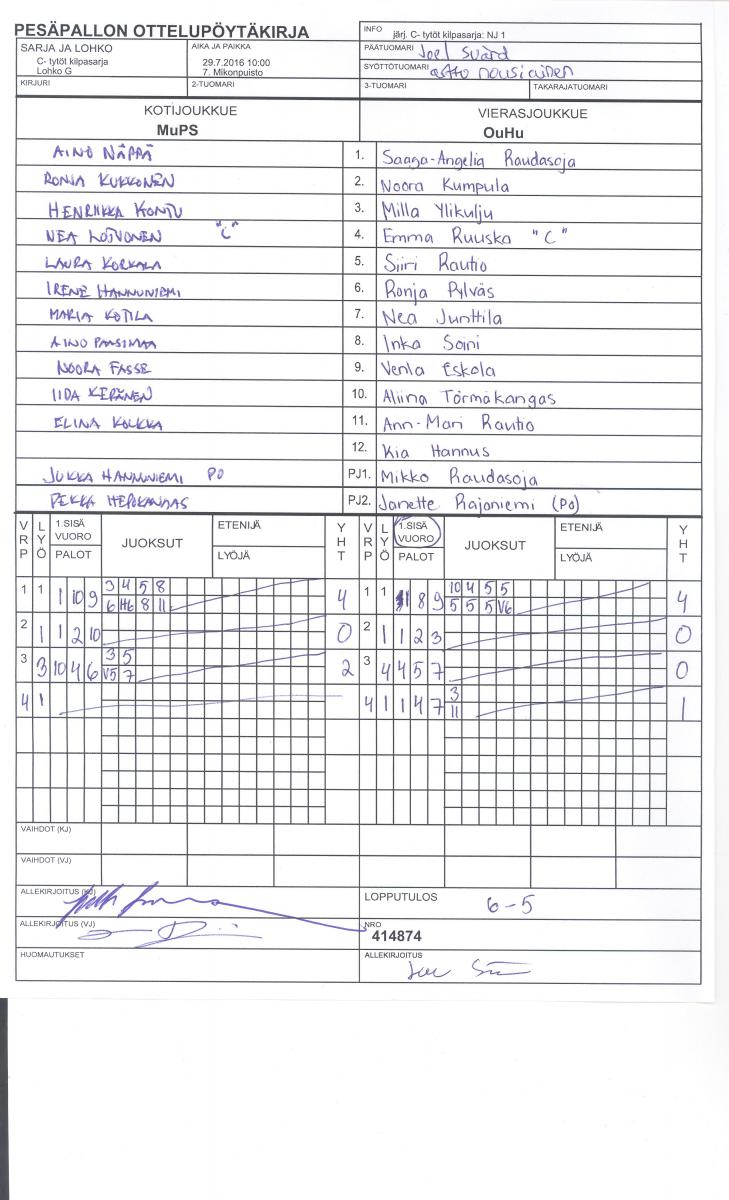 PESÄPALLON OTTELUPÖYTÄKIRJA
INFO järj. C- tytöt kilpasarja: NJ 1
SARJA JA LOHKO
C- tytöt kilpasarja
Lohko G
AIKA JA PAIKKA
29.7.2016 10:00
7. Mikonpuisto
PÄÄTUOMARI Joel Svärd
SYÖTTÖTUOMARI Asto Nousiainen
KIRJURI 2-TUOMARI 3-TUOMARI TAKARAJATUOMARI
KOTIJOUKKUE VIERASJOUKKUE
MuPS OuHu
AINO NÄPPÄ 1. Saaga-Angelia Raudasoja
RONJA KUKKONEN 2. Noora Kumpula
HENRIIKKA KONTU 3. Milla Ylikulju
NEA LOIVONEN "C" 4. Emma Ruuska "C"
LAURA KORKALA 5. Siiri Rautio
IRENE HANNUNIEMI 6. Ronja Pylväs
MARIA KOTILA 7. Nea Junttila
AINO PAASIMAA 8. Inka Soini
NOORA FASSE 9. Venla Eskola
IIDA KERÄNEN 10. Aliina Törmäkangas
ELINA KOLKKA 11. Ann-Mari Rautio
12. Kia Hannus
JUKKA HANNUNIEMI PO PJ1. Mikko Raudasoja
PEKKA HEPOKANGAS PJ2. Janette Rajaniemi (PO)
VRP LYÖ 1.SISÄ VUORO PALOT JUOKSUT ETENIJÄ LYÖJÄ YHT VRP LYÖ 1.SISÄ VUORO PALOT JUOKSUT ETENIJÄ LYÖJÄ YHT
1 1 1 10 9 3 4 5 8 4 1 1 8 9 10 4 5 5 4
6 H6 8 11 5 5 5 V6
2 1 1 2 10 0 2 1 1 2 3 0
3 3 10 4 6 3 5 2 3 4 4 5 7 0
V5 7
4 1 4 1 1 4 7 3 1
11
VAIHDOT (KJ)
VAIHDOT (VJ)
ALLEKIRJOITUS (KJ) LOPPUTULOS 6-5
ALLEKIRJOITUS (VJ) NRO
414874
HUOMAUTUKSET ALLEKIRJOITUS